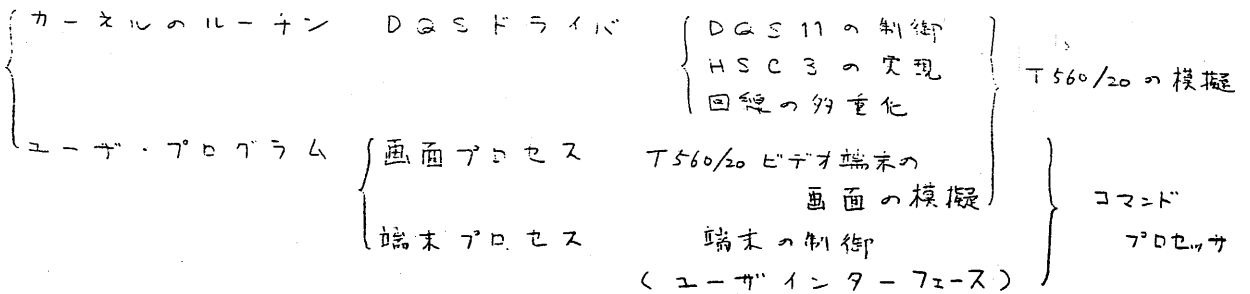 カーネルのルーチン DQSドライバ DQS11の制御
HSC3の実現
回線の多重化
T560/20の模擬
ユーザ・プログラム 画面プロセス T560/20ビデオ端末の
画面の模擬
端末プロセス 端末の制御
(ユーザインターフェース)
コマンド
プロセッサ